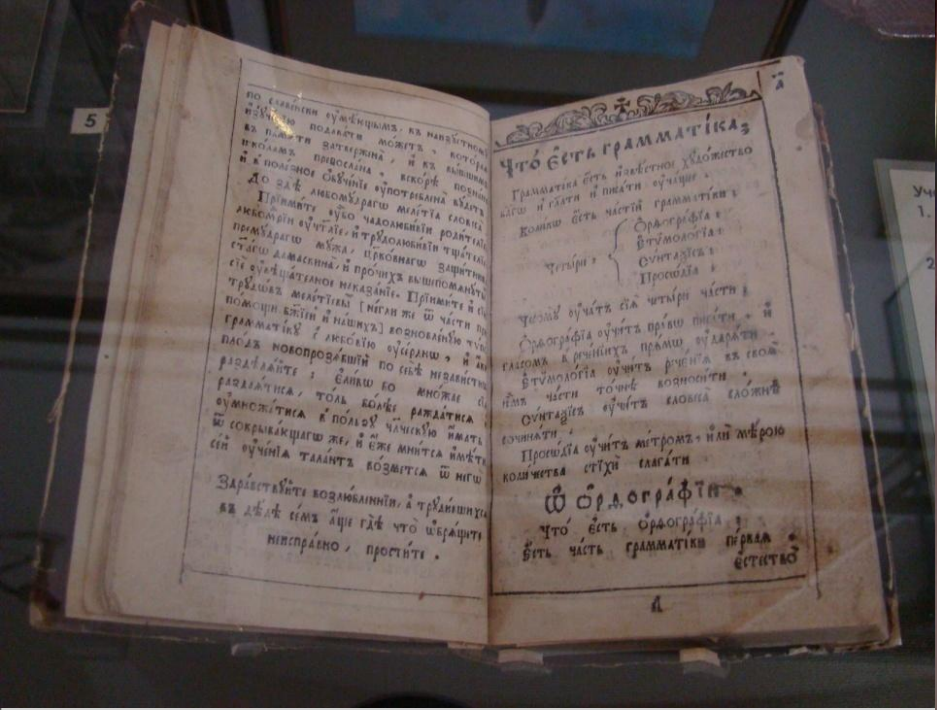 5
по славенски ᲂумѣющымъ, къ наизустному
изученію подаѧти можетъ. котораѧ
въ памѧти затвержена, и къ вышшимъ
школамъ православна вскорѣ познана
и в полезное ѻбученїе ᲂупотреблена будетъ
До здѣ любомудрагѡ мелетїа словеса
Прїимѝте ᲂу҆́бо чадолюбивїи родителїе
премудрагѡ мужа, цр҃ковнагѡ защитника
ст҃агѡ дамаскина, и҆ про́чихъ вышепомѧнутыхъ
сїѐ ᲂувѣщательное наказанїе. Прїимите и҆ сїю
трудѡвъ мелетїевы [негли же ѿ части при
помощи бж҃їей и҆ нашихъ] возновлѐнную тую
грамматїку с̾ любовїю ᲂусерднѡ, и҆ аки
плодъ новопрозѧбшїй по себѣ независтнѡ
раздѣлѧйте: є҆ликѡ бо мно́жае сїѧ
раздаѧтисѧ, толь бо́лѣе раждатисѧ и҆
ᲂумножатисѧ в пользу чл҃ческую и҆мать
ѿ сокрывающагѡ же, и҆ є҆́же мнитсѧ и҆мѣти
сеѝ ᲂуче́нїѧ талантъ во́зметсѧ ѿ негѡ̀
Здра́вствуйте возлюбленнїи, а҆ трудившихсѧ
въ дѣлѣ семъ а҆́ще гдѣ̀ что̀ ѡ҆брѧщете
неисправно, простите.
а҃
Что́ є҆́сть грамматі́ка;
Грамматїка є҆́сть и҆звѣстное художество
благѡ и҆ гл҃ати и҆ писати ᲂуча́щее.
Колики сꙋть части грамматїки;
Четы́ри.
Ѻ҆рѳографїа.
Є҆тѵмологїа.
Сѵнтаѯїсъ.
Просѡдїа.
Чесомꙋ ᲂу҆ча́тъ сїѧ̀ четы́ри части;
Ѻ҆рѳогра́фїа ᲂу҆читъ правѡ писа́ти, и҆
гласомъ в̾ рече́нїихъ прѧмѡ ᲂу҆дарѧ́ти.
Є҆тѵмоло́гїа ᲂу҆читъ рече́нїѧ въ своѧ̑
и҆̀мъ части то́чнѣ возноси́ти.
Сѵнтаѯїсъ ᲂу҆читъ словеса̀ сло́жнѣ
сочинѧ́ти.
Просѡ́дїа ᲂу҆чи́тъ ме́тромъ, и҆лѝ мѣ́рою
коли́чества стїхѝ слага́ти.
Ѿ Ѻ҆рѳогра́фїи.
Что́ є҆́сть ѻ҆рѳогра́фїа;
Є҆́сть ча́сть грамматїки пе́рваѧ.
є҆стество̀
А
Уч
1.
2